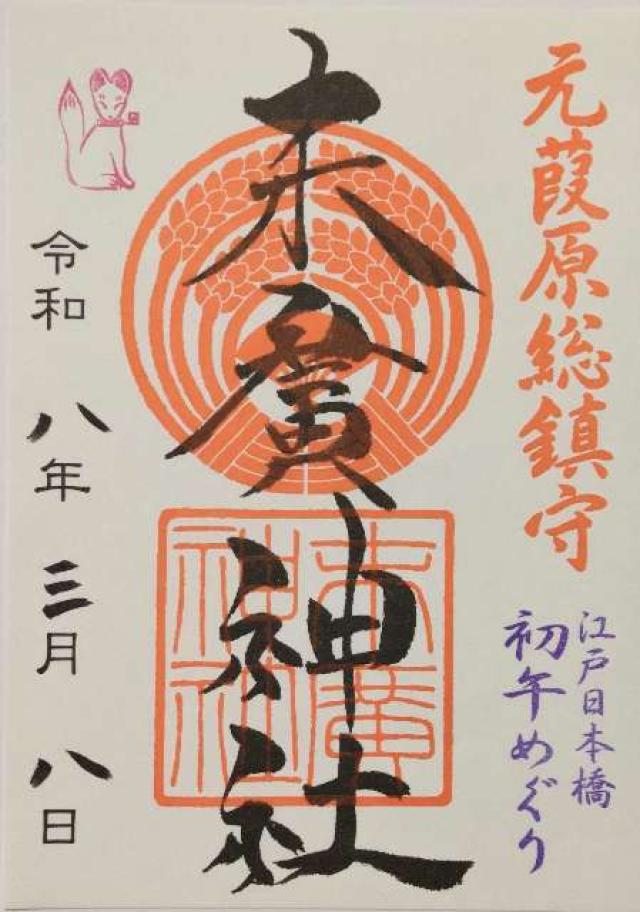 元葭原総鎮守
江戸日本橋
初午めぐり
末廣神社
末廣
神社
令和八年三月八日